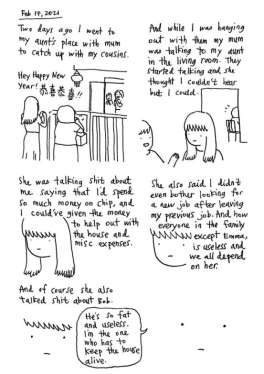 Feb 14, 2021
Two days ago I went to
my aunt's place with mum
to catch up with my cousins.
Hey Happy New
Year!
And while I was hanging
out with them my mum
was talking to my aunt
in the living room. They
started talking and she
thought I couldn't hear
but I could.
She was talking shit about
me saying that I'd spend
so much money on chip, and
I could've given the money
to help out with
the house and
misc expenses.
She also said I didn't
even bother looking for
a new job after leaving
my previous job. And how
everyone in the family
except Emma,
is useless and
we all depend
on her.
And of course she also
talked shit about Bob.
He's so fat
and useless.
I'm the one
who has to
keep the house
alive.